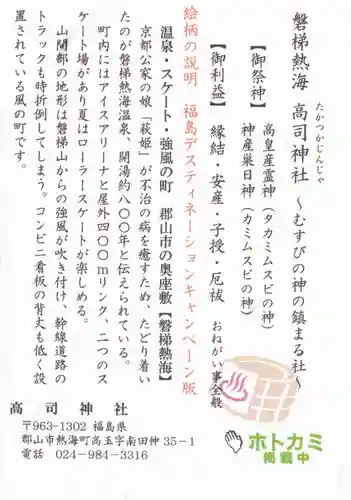 たかつかじんじゃ
磐梯熱海 高司神社 ～むすびの神の鎮まる社～
【御祭神】 高皇産霊神（タカミムスビの神）
神産巣日神（カミムスビの神）
【御利益】 縁結・安産・子授・厄祓 おねがい事全般
絵柄の説明 福島デスティネーションキャンペーン版
温泉・スケート・強風の町 郡山市の奥座敷【磐梯熱海】
京都公家の娘「萩姫」が不治の病を癒すため、たどり着い
たのが磐梯熱海温泉、開湯約八〇〇年と伝えられている。
町内にはアイスアリーナと屋外四〇〇ｍリンク、二つのス
ケート場があり夏はローラースケートが楽しめる。
山間部の地形は磐梯山からの強風が吹き付け、幹線道路の
トラックも時折倒してしまう。コンビニ看板の背丈も低く設
置されている風の町です。
高司神社
〒963-1302 福島県
郡山市熱海町高玉字南田仲35－1
電話 024-984-3316
ホトカミ
掲載中